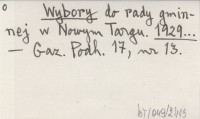 o
Wybory do rady gmin-
nej w Nowym Targu. 1929...
— Gaz. Podh. 17, nr 13.
bł/049/2/45